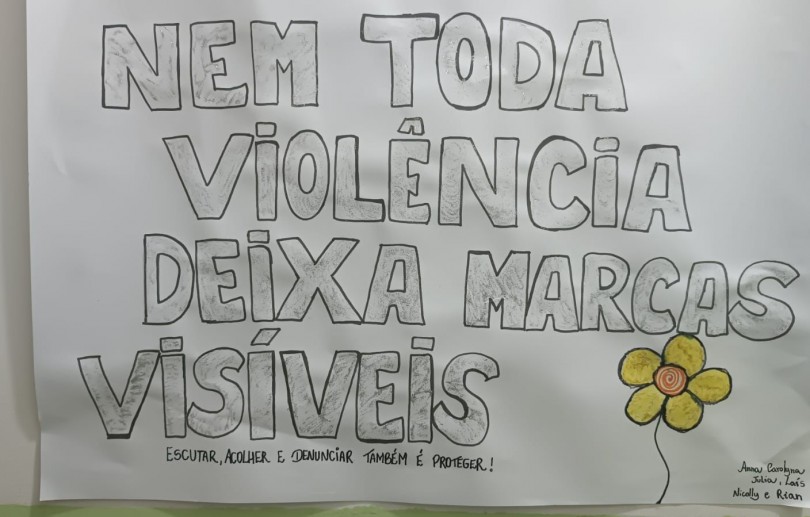 NEM TODA
VIOLÊNCIA
DEIXA MARCAS
VISÍVEIS
ESCUTAR, ACOLHER E DENUNCIAR TAMBÉM É PROTEGER!
Anna Carolyna
Julia, Laís
Nicolly e Rian